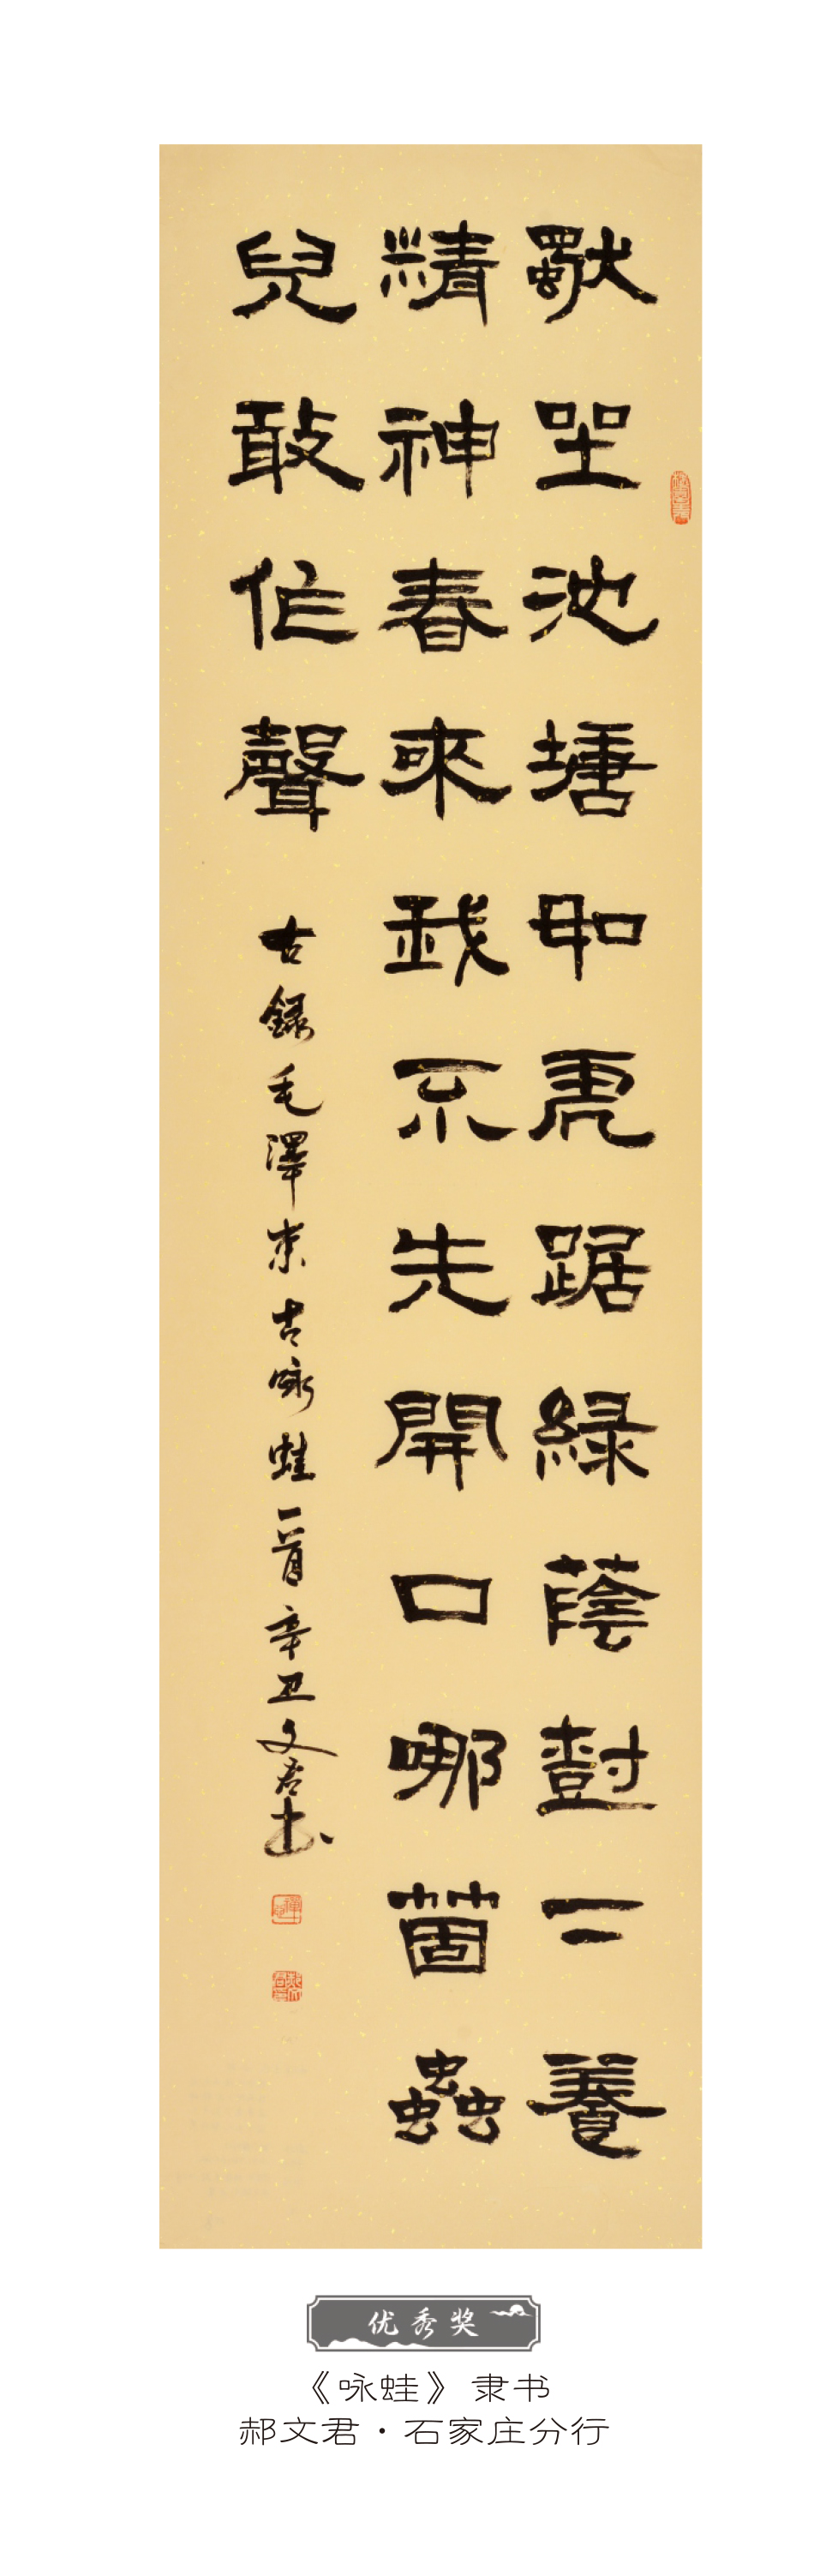 獨坐池塘如虎踞綠蔭樹下養
精神春來我不先開口哪箇蟲
兒敢作聲
古録毛澤东古咏蛙一首辛丑文君书
优秀奖
《咏蛙》隶书
郝文君·石家庄分行